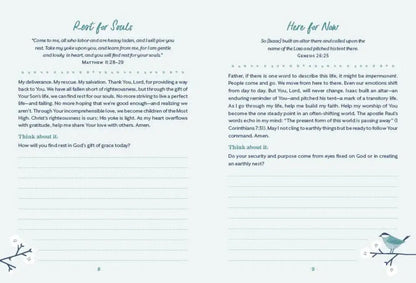 Rest for Souls
"Come to me, all who labor and are heavy laden, and I will give you
rest. Take my yoke upon you, and learn from me, for I am gentle
and lowly in heart, and you will find rest for your souls."
MATTHEW 11:28–29
My deliverance. My rescue. My salvation. Thank You, Lord, for providing a way
back to You. We have all fallen short of righteousness, but through the gift of
Your Son's life, we can find rest for our souls. No more striving to live a perfect
life—and failing. No more hoping that we're good enough—and realizing we
aren't. Through Your incomprehensible love, we become children of the Most
High. Christ's righteousness is ours; His yoke is light. As my heart overflows
with gratitude, help me share Your love with others. Amen.
Think about it.
How will you find rest in God's gift of grace today?
8
Here for Now
So [Isaac] built an altar there and called upon the
name of the LORD and pitched his tent there.
GENESIS 26:25
Father, if there is one word to describe this life, it might be impermanent.
People come and go. We move from here to there. Even our emotions shift
from day to day. But You, Lord, will never change. Isaac built an altar—an
enduring reminder of You—and pitched his tent—a mark of a transitory life.
As I go through my life, help me build my faith. Help my worship of You
become the one steady point in an often-shifting world. The apostle Paul's
words echo in my mind: "The present form of this world is passing away" (1
Corinthians 7:31). May I not cling to earthly things but be ready to follow Your
command. Amen.
Think about it.
Do your security and purpose come from eyes fixed on God or in creating
an earthly nest?
9